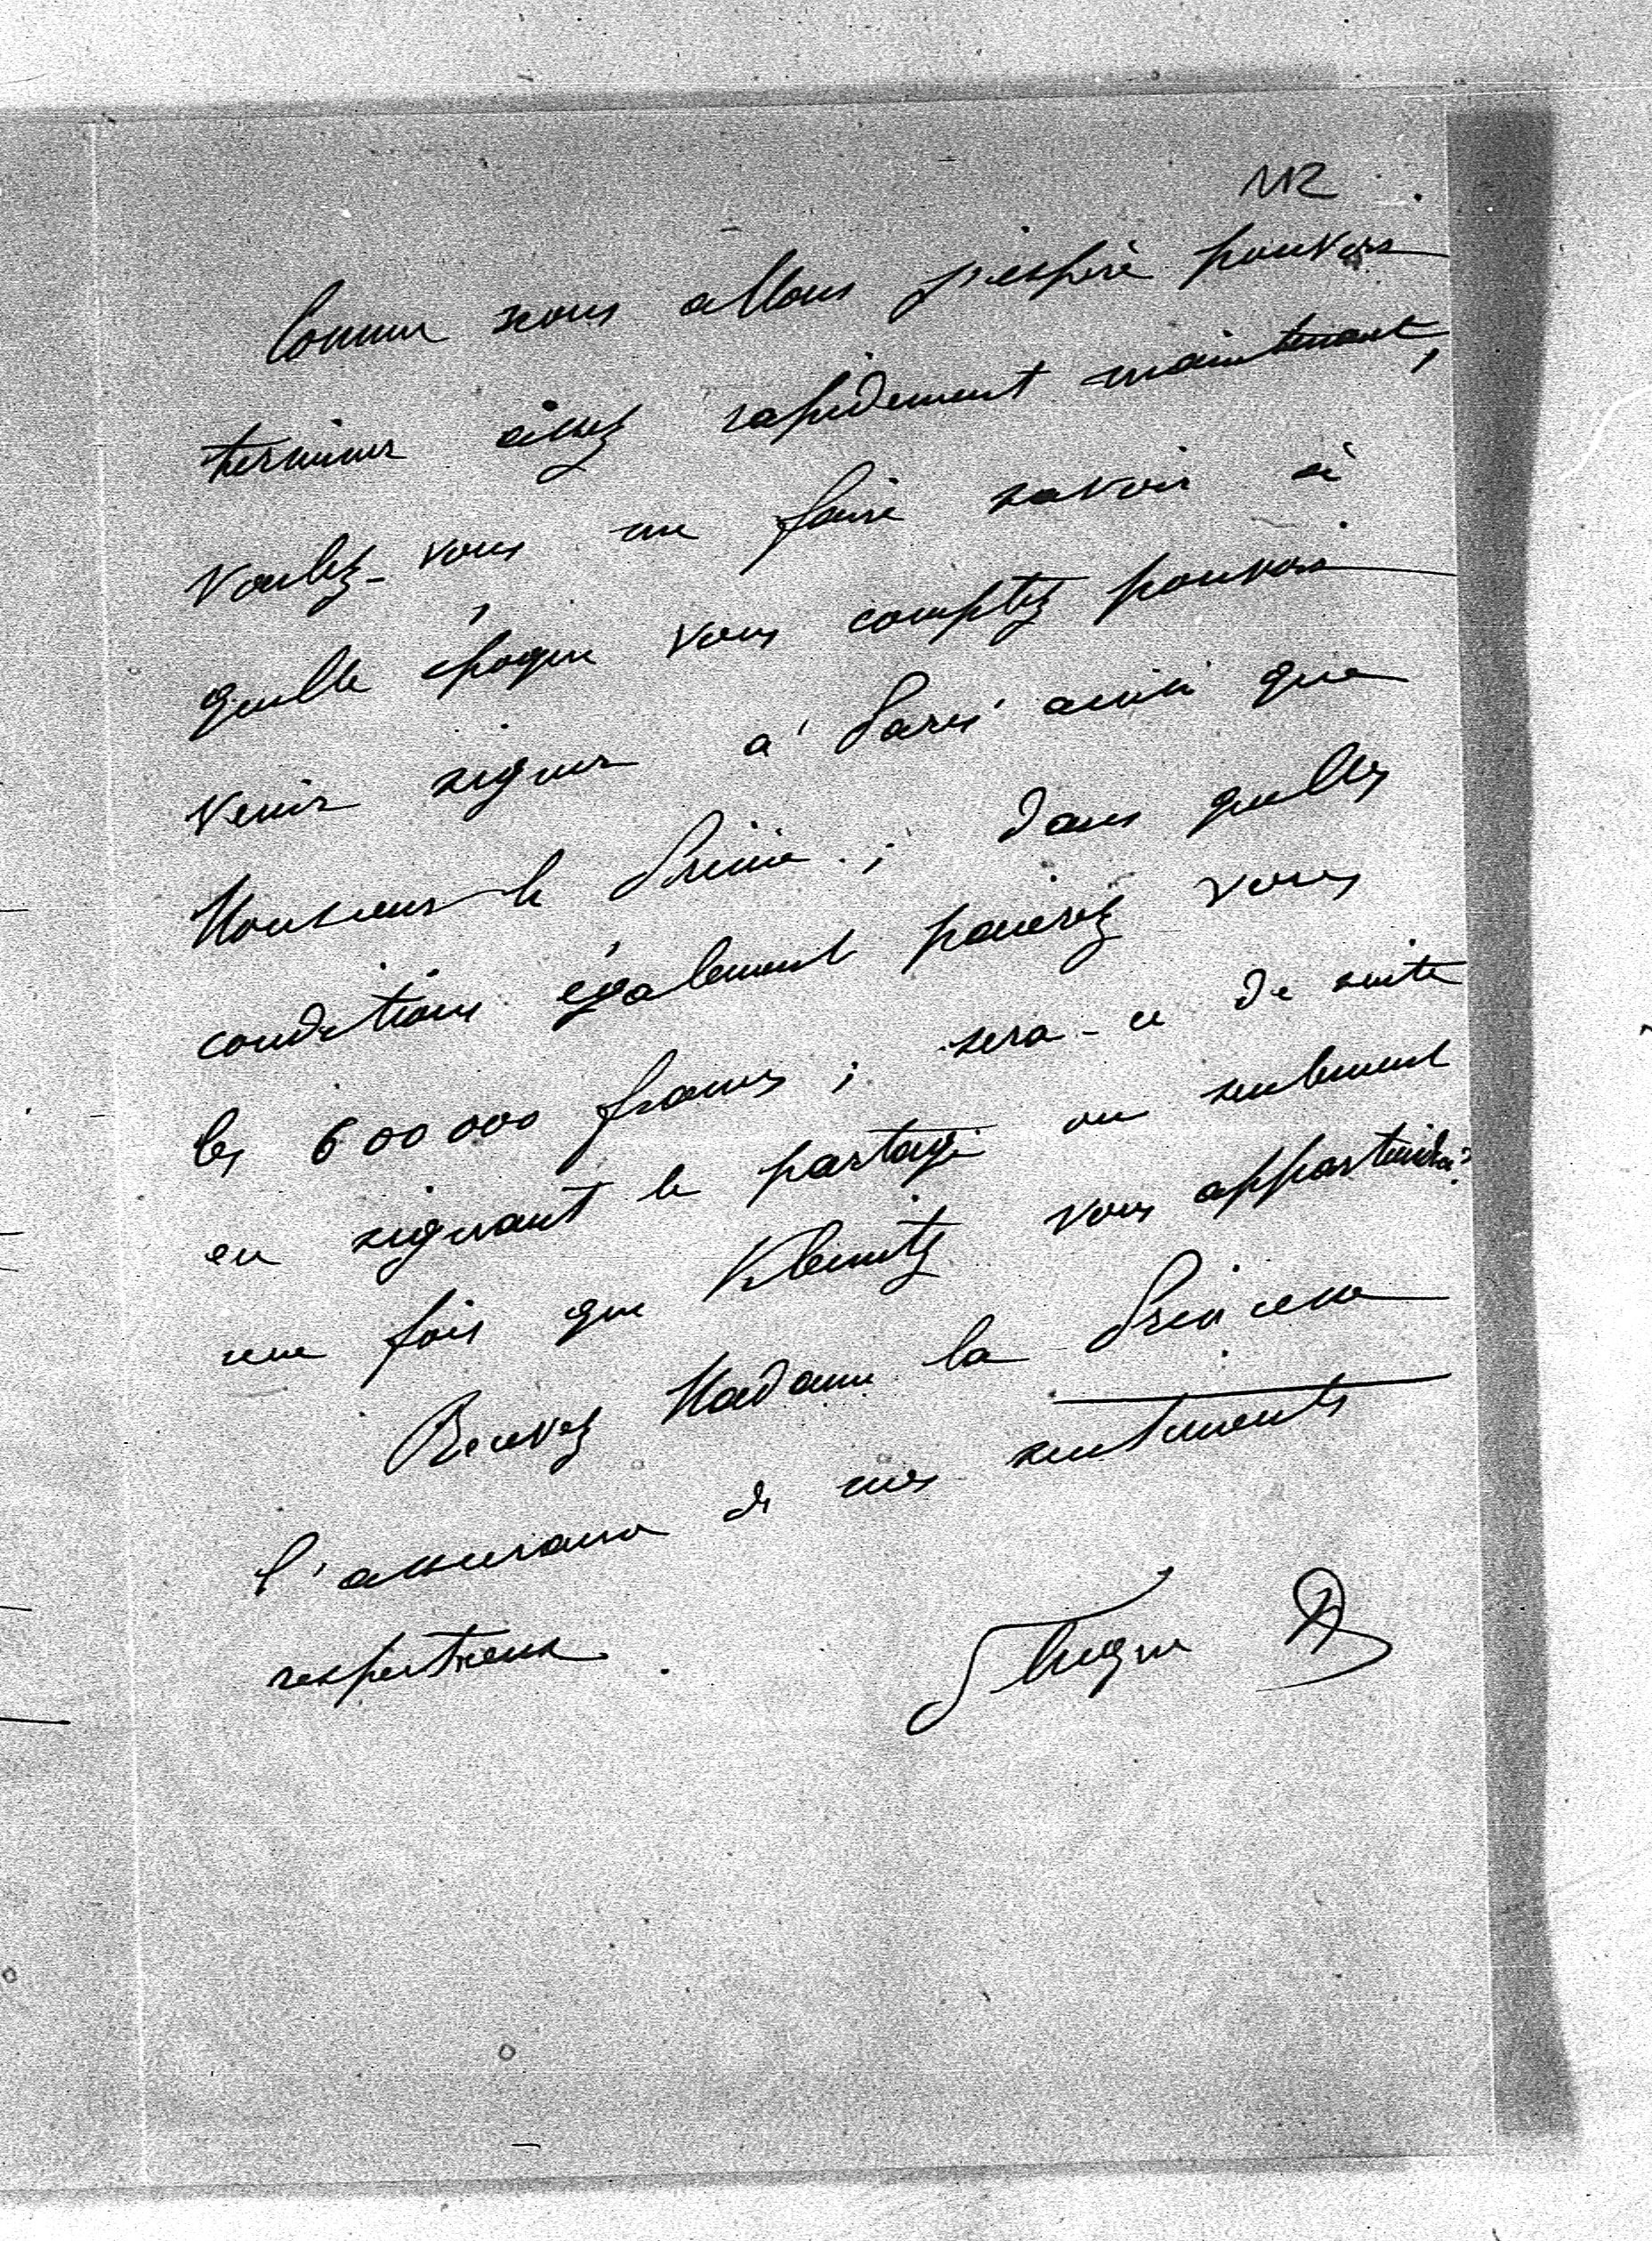 112
Comme nous allons j'espère pouvoir
terminer assez rapidement maintenant,
voulez-vous me faire savoir à
quelle époque vous comptez pouvoir
venir signer à Paris ainsi que
Monsieur le Prince ; dans quelles
conditions également paierez vous
les 600 000 francs ; sera-ce de suite
en signant le partage ou seulement
une fois que Klemitz vous appartiendra ?
Recevez Madame la Princesse
l'assurance de mes sentiments
respectueux.